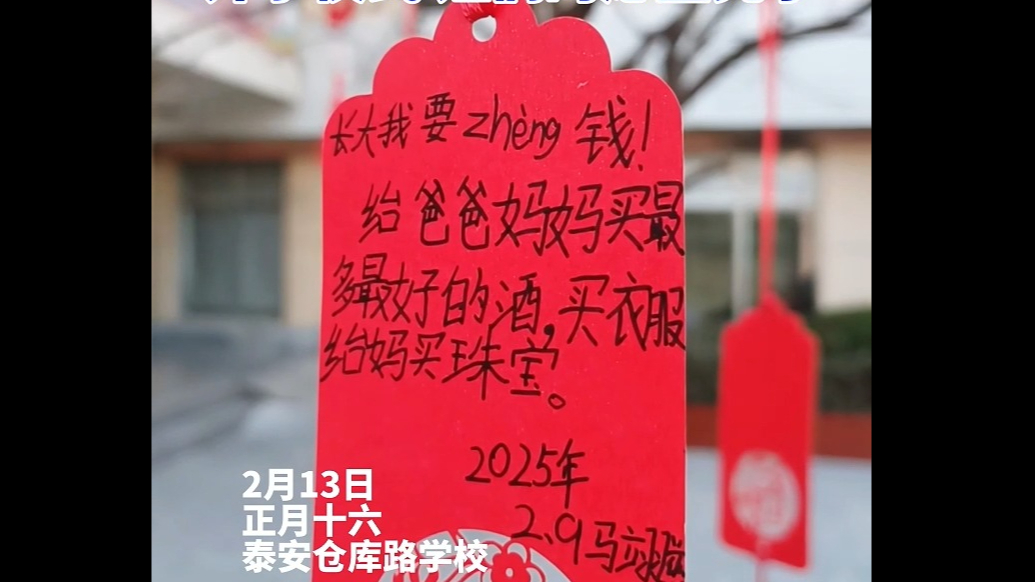 长大我要zhèng钱!
给爸爸妈妈买最
多最好的酒,买衣服
给妈买珠宝。
2025年
2.9
2月13日
正月十六
泰安仓库路学校